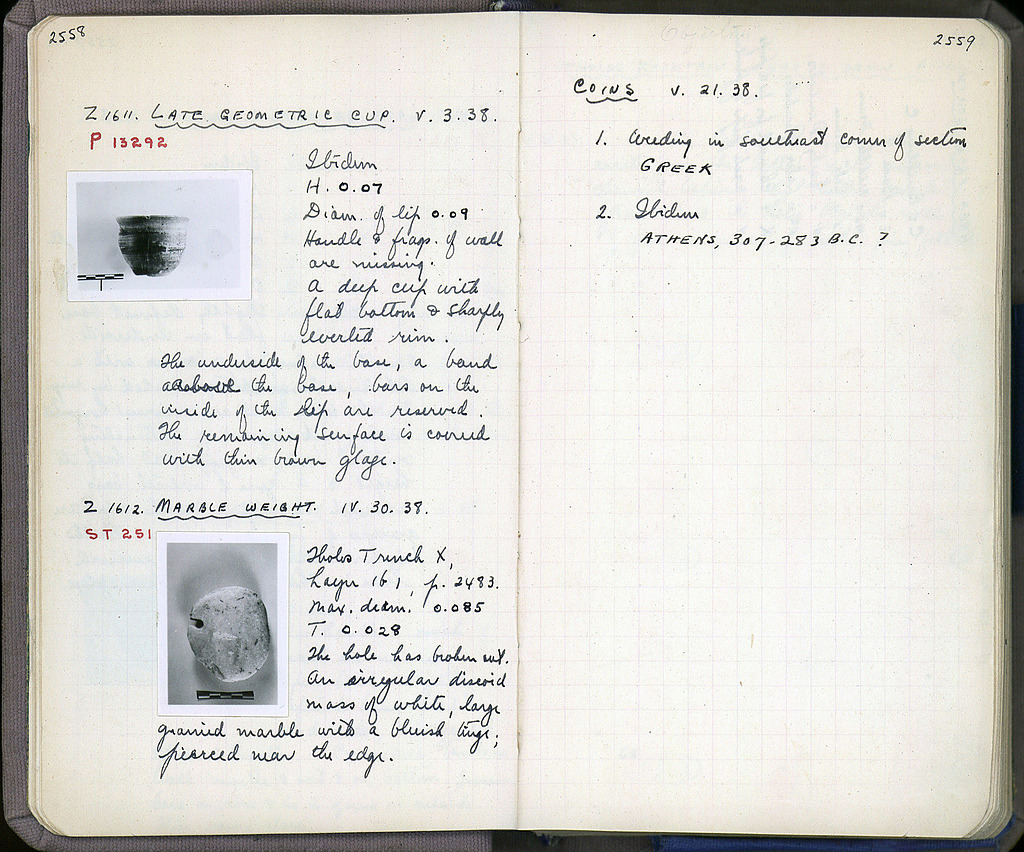 2558
Z 1611. LATE GEOMETRIC CUP. V. 3. 38.
P 13292
Ibidem
H. 0.07
Diam. of lip 0.09
Handle & frags. of wall
are missing.
A deep cup with
flat bottom & sharply
everted rim.
The underside of the base, a band
the base, bars on the
inside of the lip are reserved.
The remaining surface is covered
with thin brown glaze.
Z 1612. MARBLE WEIGHT. IV. 30. 38.
ST 251
Tholos Trench X,
Layer 16 1, p. 2483.
Max. diam. 0.085
T. 0.028
The hole has broken out.
An irregular discoid
mass of white, large
grained marble with a bluish tinge;
pierced near the edge.
2559
COINS V. 21. 38.
1. Weeding in southeast corner of section
GREEK
2. Ibidem
ATHENS, 307-283 B.C. ?